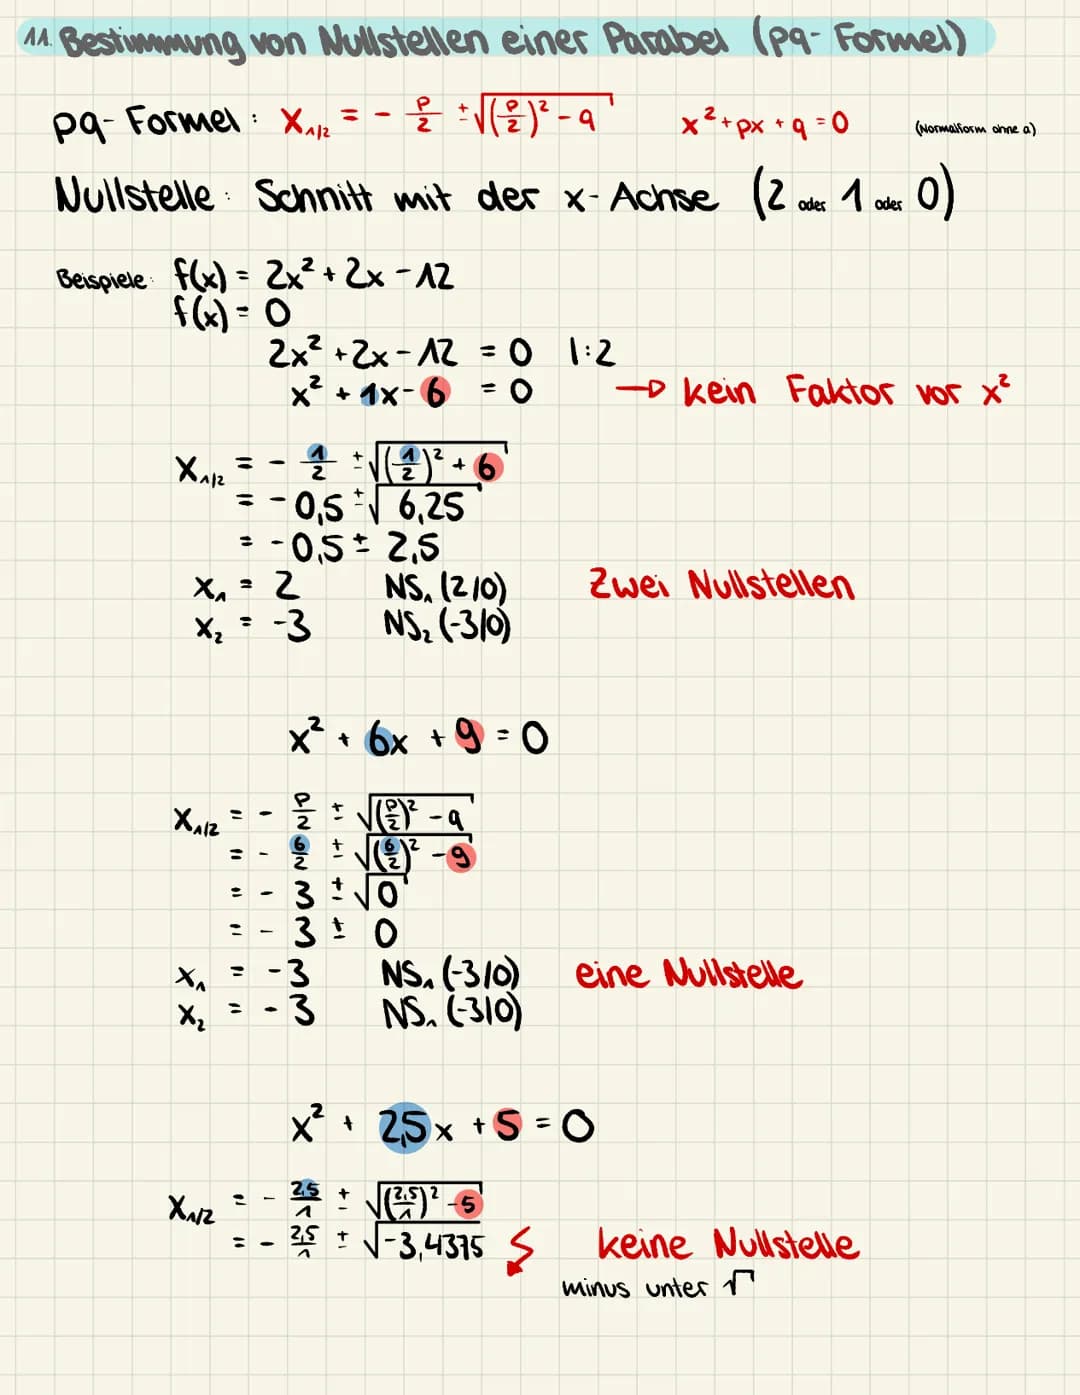 11. Bestimmung von Nullstellen einer Parabel (pq-Formel)
pq-Formel: x₁/₂ = - p/2 ± √((p/2)² - q) x² + px + q = 0 (Normalform ohne a)
Nullstelle: Schnitt mit der x-Achse (2 oder 1 oder 0)
Beispiele: f(x) = 2x² + 2x - 12
f(x) = 0
2x² + 2x - 12 = 0 |:2
x² + 1x - 6 = 0 → kein Faktor vor x²
x₁/₂ = - 1/2 ± √((1/2)² + 6)
= - 0,5 ± √6,25
= - 0,5 ± 2,5
x₁ = 2 NS₁ (2|0) Zwei Nullstellen
x₂ = -3 NS₂ (-3|0)
x² + 6x + 9 = 0
x₁/₂ = - p/2 ± √((p/2)² - q)
= - 6/2 ± √((6/2)² - 9)
= - 3 ± √0
= - 3 ± 0
x₁ = -3 NS₁ (-3|0) eine Nullstelle
x₂ = -3 NS₁ (-3|0)
x² + 2,5x + 5 = 0
x₁/₂ = - 2,5/1 ± √((2,5/1)² - 5)
= - 2,5/1 ± √-3,4375 keine Nullstelle
minus unter √